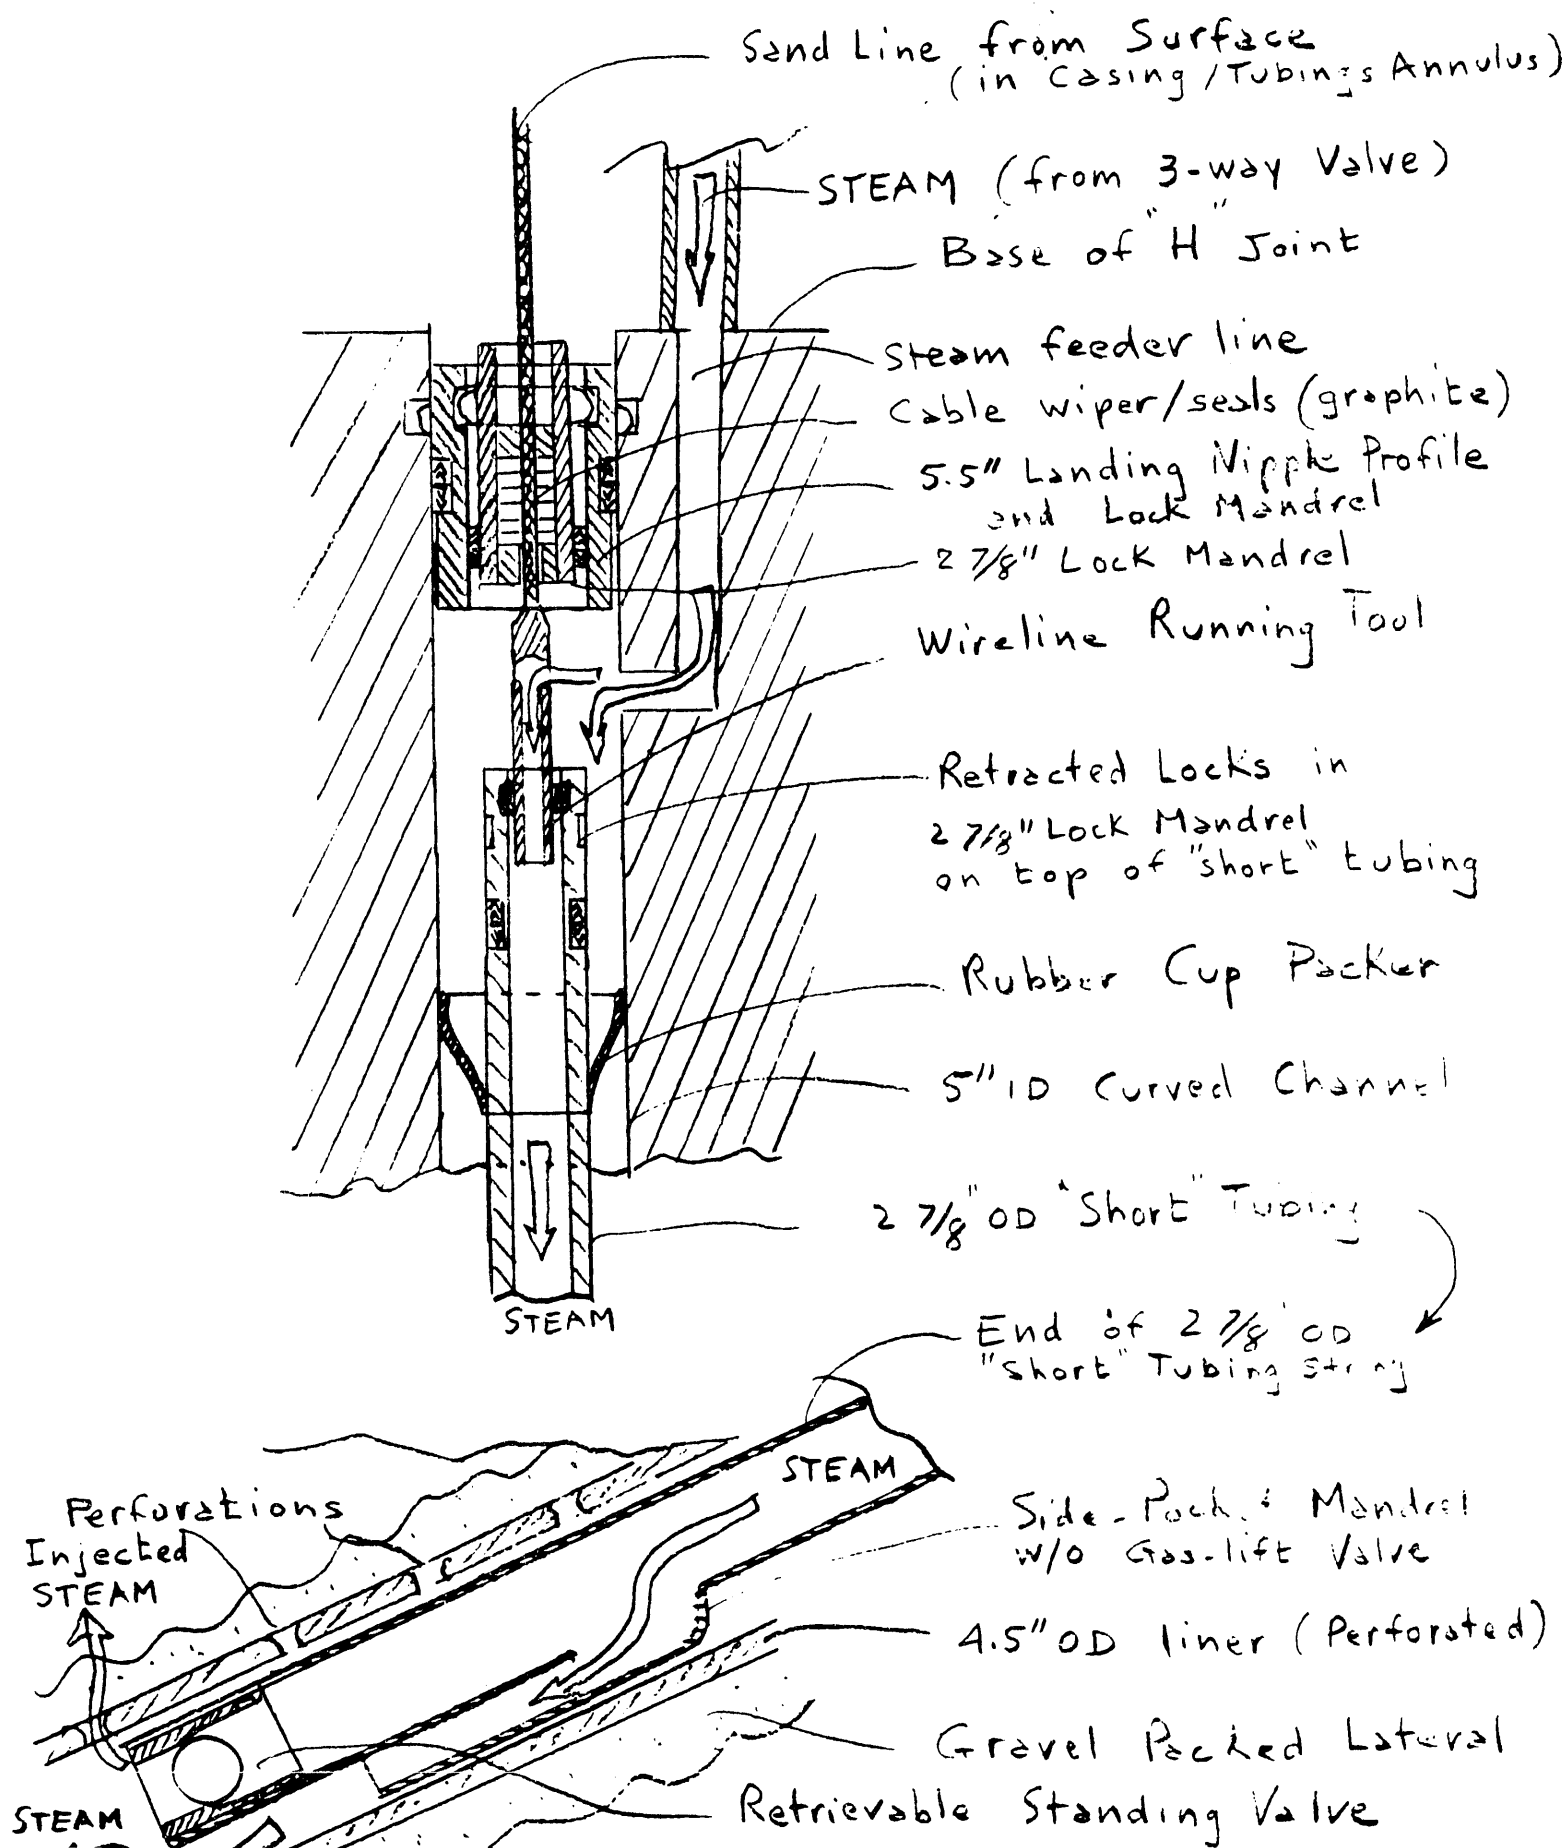 Sand Line from Surface
(in Casing/Tubings Annulus)
STEAM (from 3-way Valve)
Base of "H" Joint
Steam feeder line
Cable wiper/seals (graphite)
5.5" Landing Nipple Profile
and Lock Mandrel
2 7/8" Lock Mandrel
Wireline Running Tool
Retracted Locks in
2 7/8" Lock Mandrel
on top of "short" tubing
Rubber Cup Packer
5" ID Curved Channel
2 7/8" OD "Short" Tubing
STEAM
End of 2 7/8" OD
"Short" Tubing String
STEAM
Perforations
Injected
STEAM
Side-Pocket Mandrel
w/o Gas-lift Valve
4.5" OD liner (Perforated)
Gravel Packed Lateral
Retrievable Standing Valve
STEAM